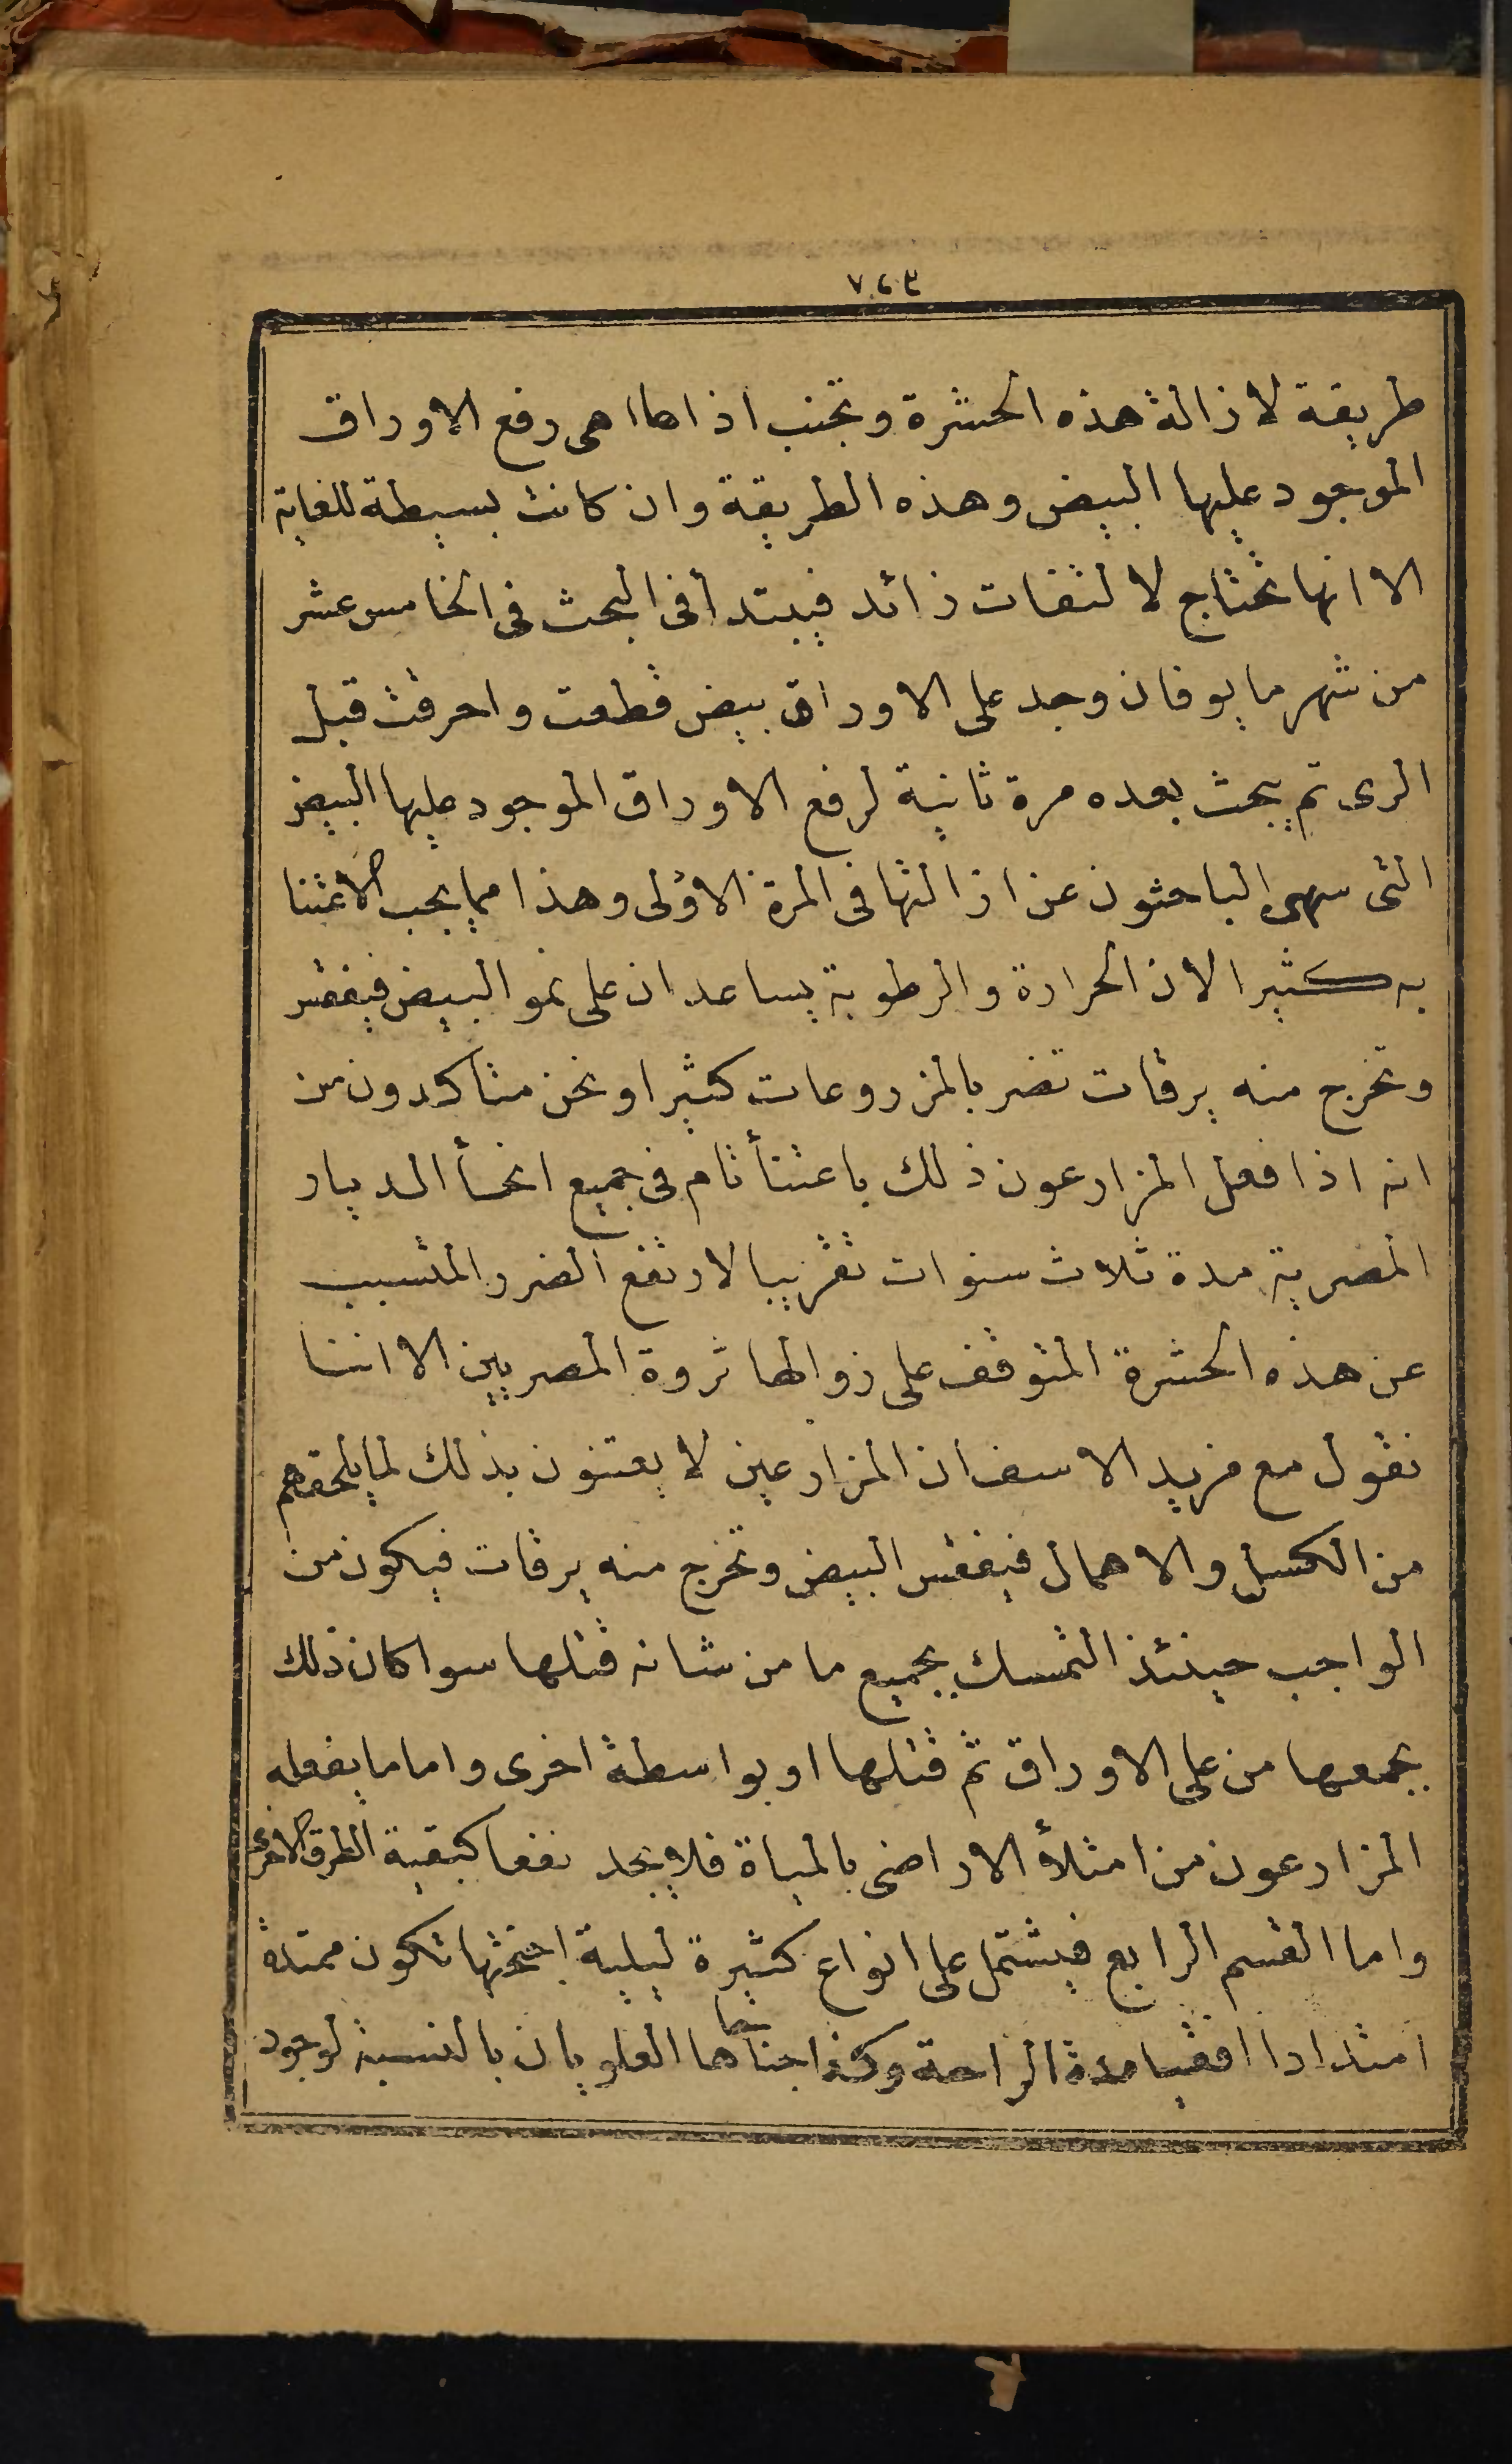 ٧٤٣
طريقة لازالة هذه الحشرة وتجنب اذاها هى رفع الاوراق
الموجود عليها البيض وهذه الطريقة وان كانت بسيطة للغاية
الا انها تحتاج لالتفات زائد فيبتدأ فى البحث فى الخامس عشر
من شهر مايو فان وجد على الاوراق بيض قطعت واحرقت قبل
الرى ثم يبحث بعده مرة ثانية لرفع الاوراق الموجود عليها البيض
التى سهى الباحثون عن ازالتها فى المرة الاولى وهذا مما يجب الاعتنا
به كثيرا لان الحرارة والرطوبة يساعدان على نمو البيض فيفقس
وتخرج منه يرقات تضر بالمزروعات كثيرا ونحن متاكدون من
انه اذا فعل المزارعون ذلك باعتنأ تام فى جميع انحأ الديار
المصرية مدة ثلاث سنوات تقريبا لارتفع الضرر المتسبب
عن هذه الحشرة المتوقف على زوالها ثروة المصريين الا اننا
نقول مع مزيد الاسف ان المزارعين لا يعتنون بذلك لما يلحقهم
من الكسل والاهمال فيفقس البيض وتخرج منه يرقات فيكون من
الواجب حينئذ التمسك بجميع ما من شانه قتلها سوا كان ذلك
بجمعها من على الاوراق ثم قتلها او بواسطة اخرى واما ما يفعله
المزارعون من امتلأ الاراضى بالمياة فلا يجد نفعا كبقية الطرق الاخرى
واما القسم الرابع فيشتمل على انواع كثيرة ليلية اجنحتها تكون ممتدة
امتدادا افقيا مدة الراحة وكذا جناحاها العلويان بالنسبة لوجود